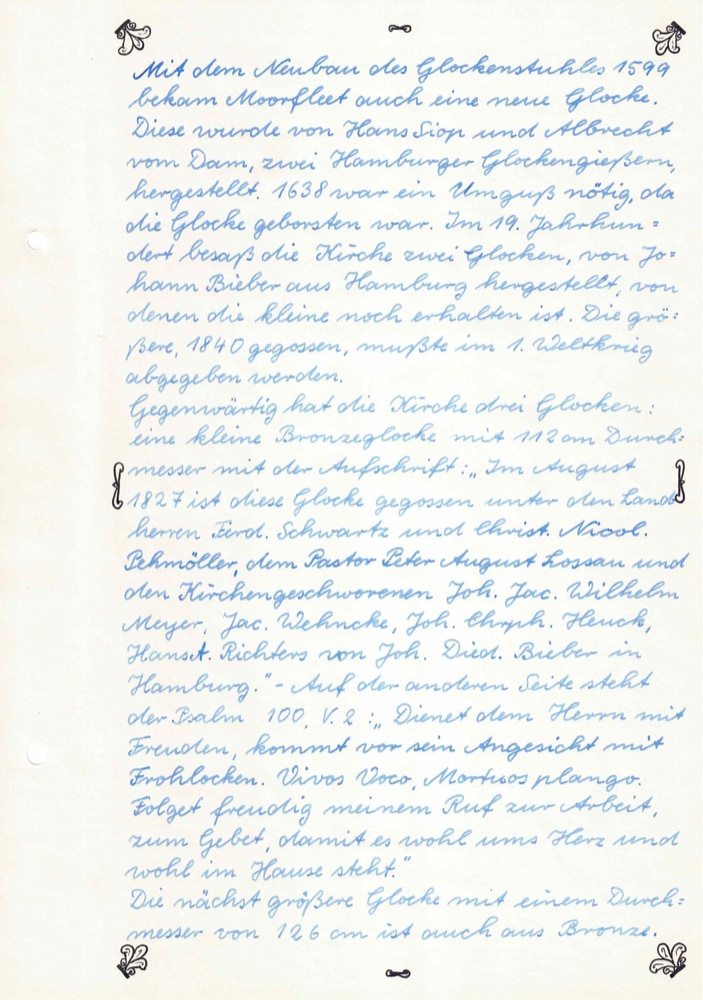 Mit dem Neubau des Glockenstuhles 1599
bekam Moorfleet auch eine neue Glocke.
Diese wurde von Hans Siop und Albrecht
vom Dam, zwei Hamburger Glockengießern,
hergestellt. 1638 war ein Umguß nötig, da
die Glocke geborsten war. Im 19. Jahrhun=
dert besaß die Kirche zwei Glocken, von Jo=
hann Bieber aus Hamburg hergestellt, von
denen die kleine noch erhalten ist. Die grö=
ßere, 1840 gegossen, mußte im 1. Weltkrieg
abgegeben werden.
Gegenwärtig hat die Kirche drei Glocken:
eine kleine Bronzeglocke mit 112 cm Durch=
messer mit der Aufschrift: „Im August
1827 ist diese Glocke gegossen unter den Land
herren Ferd. Schwartz und Christ. Nicol.
Pehmöller, dem Pastor Peter August Lossau und
den Kirchengeschworenen Joh. Jac. Wilhelm
Meyer, Jac. Wehncke, Joh. Chrph. Heuck,
Hans A. Richters von Joh. Died. Bieber in
Hamburg." - Auf der anderen Seite steht
der Psalm 100, V. 2 : „Dienet dem Herrn mit
Freuden, kommt vor sein Angesicht mit
Frohlocken. Vivos Voco, Mortuos plango.
Folget freudig meinem Ruf zur Arbeit,
zum Gebet, damit es wohl ums Herz und
wohl im Hause steht."
Die nächst größere Glocke mit einem Durch=
messer von 126 cm ist auch aus Bronze.